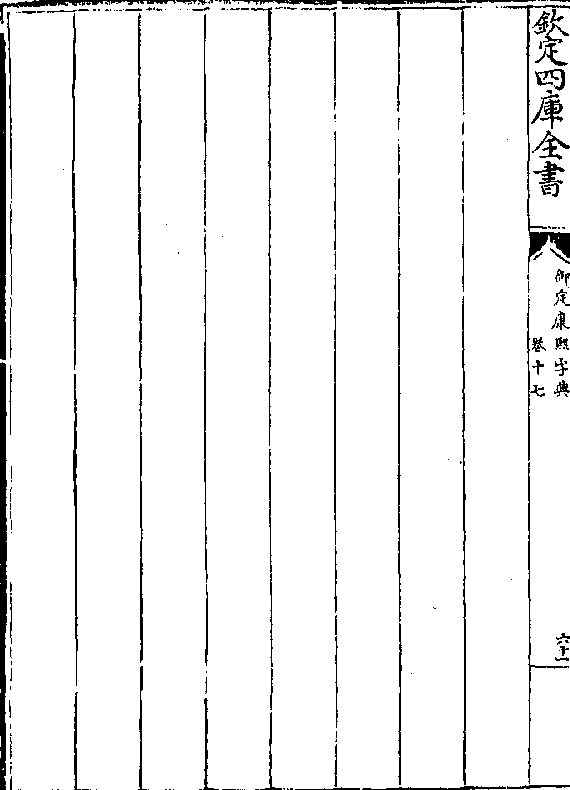 欽定四庫全書
御定康熙字典
卷十七
六十一